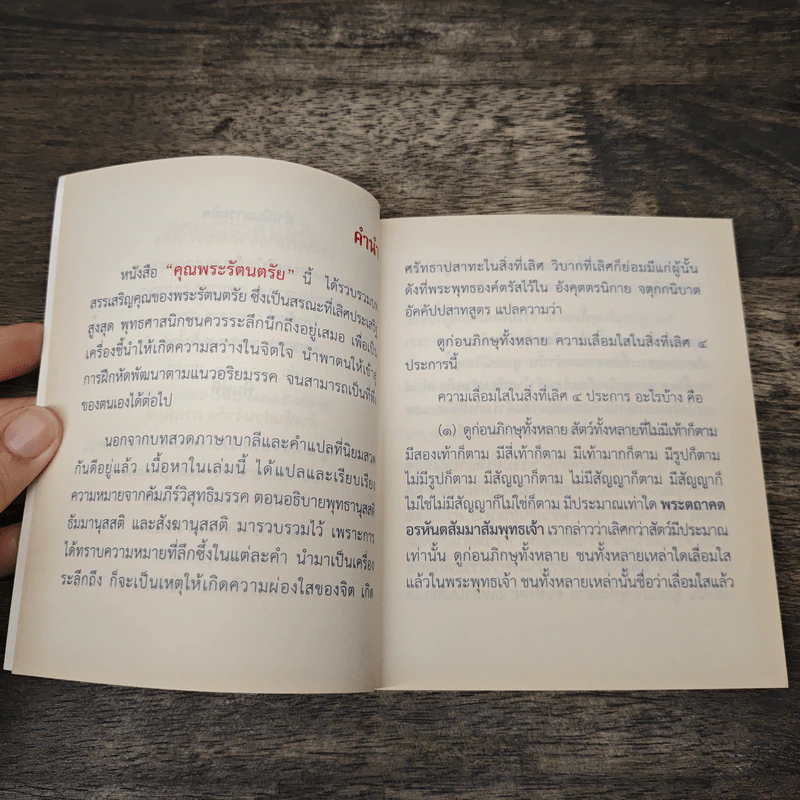 คำนำ
หนังสือ “คุณพระรัตนตรัย” นี้ ได้รวบรวมบท
สรรเสริญคุณของพระรัตนตรัย ซึ่งเป็นสรณะที่เลิศประเสริฐ
สูงสุด พุทธศาสนิกชนควรระลึกนึกถึงอยู่เสมอ เพื่อเป็น
เครื่องชี้นำให้เกิดความสว่างในจิตใจ นำพาตนให้เข้าสู่
การฝึกหัดพัฒนาตามแนวอริยมรรค จนสามารถเป็นที่พึ่ง
ของตนเองได้ต่อไป
นอกจากบทสวดภาษาบาลีและคำแปลที่นิยมสวด
กันดีอยู่แล้ว เนื้อหาในเล่มนี้ ได้แปลและเรียบเรียง
ความหมายจากคัมภีร์วิสุทธิมรรค ตอนอธิบายพุทธานุสสติ
ธัมมานุสสติ และสังฆานุสสติ มารวบรวมไว้ เพราะการ
ได้ทราบความหมายที่ลึกซึ้งในแต่ละคำ นำมาเป็นเครื่อง
ระลึกถึง ก็จะเป็นเหตุให้เกิดความผ่องใสของจิต เกิด
ศรัทธาปสาทะในสิ่งที่เลิศ วิบากที่เลิศก็ย่อมมีแก่ผู้นั้น
ดังที่พระพุทธองค์ตรัสไว้ใน อังคุตตรนิกาย จตุกกนิบาต
อัคคัปปสาทสูตร แปลความว่า
ดูก่อนภิกษุทั้งหลาย ความเลื่อมใสในสิ่งที่เลิศ ๔
ประการนี้
ความเลื่อมใสในสิ่งที่เลิศ ๔ ประการ อะไรบ้าง คือ
(๑) ดูก่อนภิกษุทั้งหลาย สัตว์ทั้งหลายที่ไม่มีเท้าก็ตาม
มีสองเท้าก็ตาม มีสี่เท้าก็ตาม มีเท้ามากก็ตาม มีรูปก็ตาม
ไม่มีรูปก็ตาม มีสัญญาก็ตาม ไม่มีสัญญาก็ตาม มีสัญญาก็
ไม่ใช่ไม่มีสัญญาก็ไม่ใช่ก็ตาม มีประมาณเท่าใด พระตถาคต
อรหันตสัมมาสัมพุทธเจ้า เรากล่าวว่าเลิศกว่าสัตว์มีประมาณ
เท่านั้น ดูก่อนภิกษุทั้งหลาย ชนทั้งหลายเหล่าใดเลื่อมใส
แล้วในพระพุทธเจ้า ชนทั้งหลายเหล่านั้นชื่อว่าเลื่อมใสแล้ว